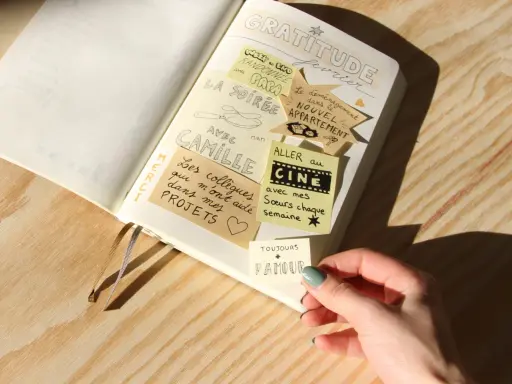 GRATITUDE
février
PAPA
LA SOIRÉE
AVEC
CAMILLE
Le déménagement
dans le
NOUVEL
APPARTEMENT
MERCI
Les collègues
qui m'ont aidé
dans mes
PROJETS
ALLER au
CINÉ
avec mes
Sœurs chaque
semaine
TOUJOURS
+
D'AMOUR